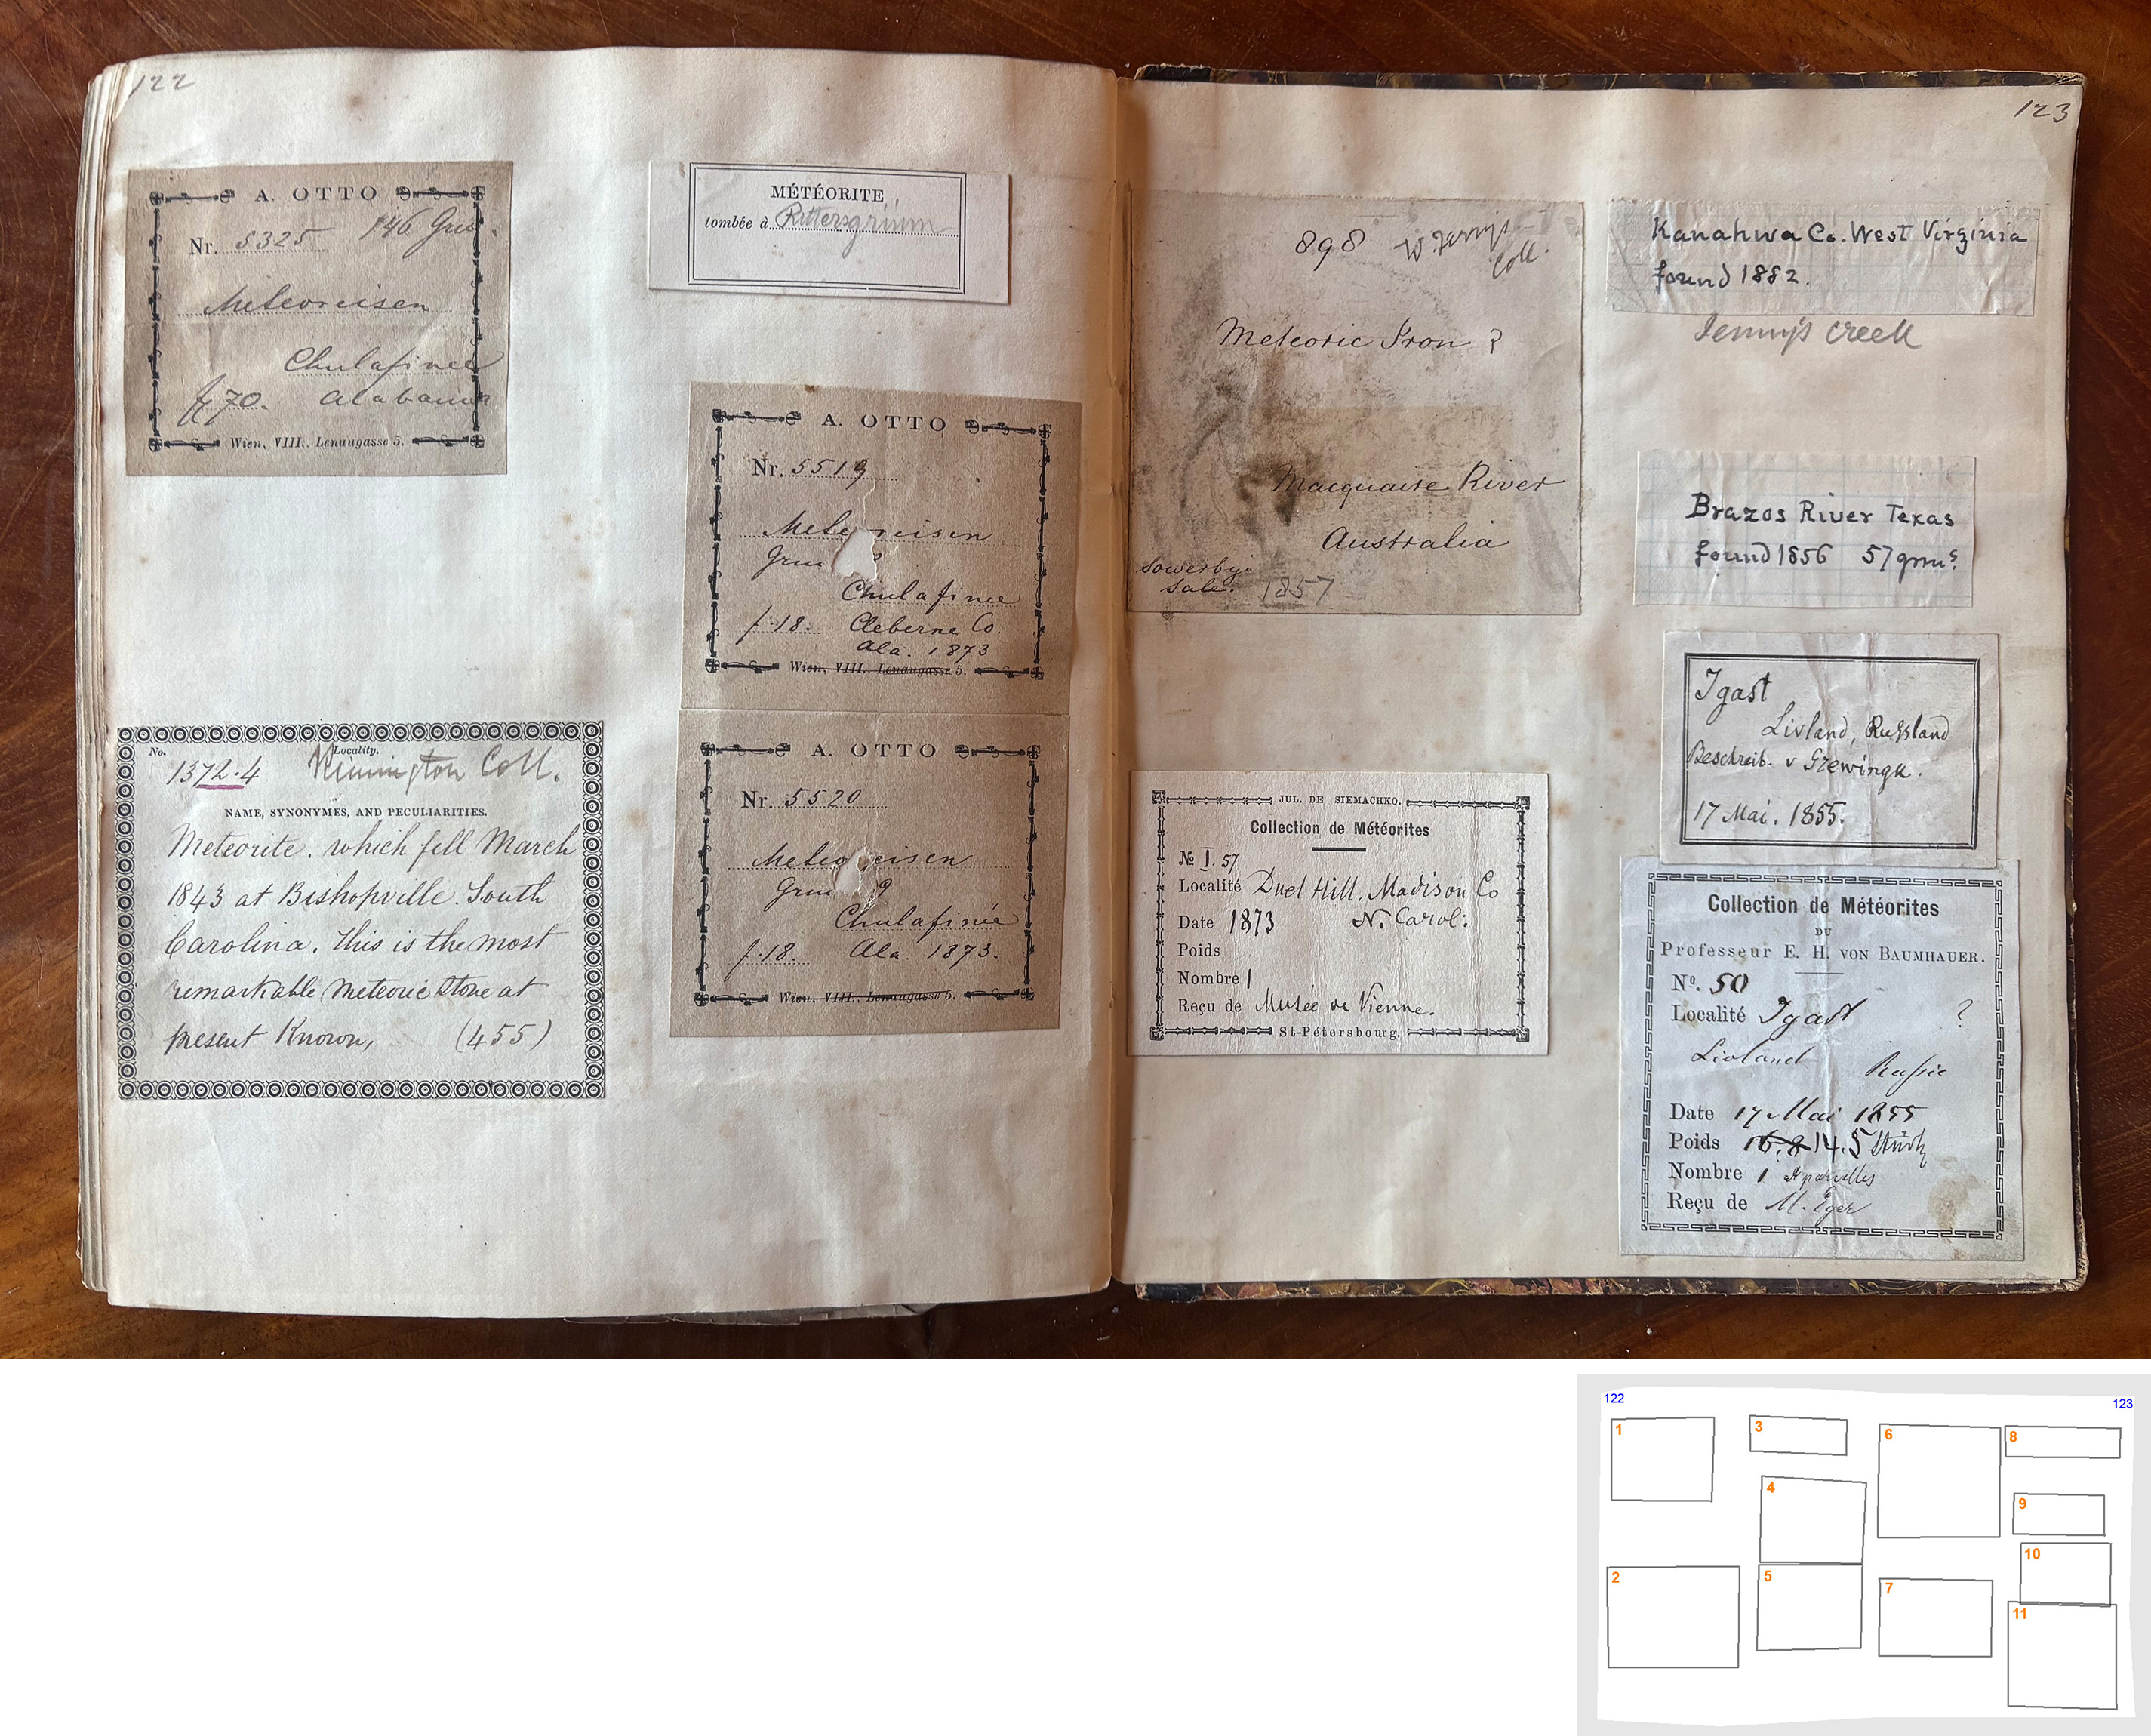 122
A. OTTO
Nr. 5325 146 Grm.
Meteoreisen
Chulafinee
f 70. Alabama
Wien, VIII., Lenaugasse 5.
No. Locality.
1372.4 Coll.
NAME, SYNONYMES, AND PECULIARITIES.
Meteorite. which fell March
1843 at Bishopville. South
Carolina. This is the most
remarkable meteoric stone at
present Known, (455)
MÉTÉORITE
tombée à Rittersgrünn
A. OTTO
Nr. 5519
Mete reisen
Grm
Chulafinee
f. 18. Cleberne Co.
Ala. 1873
Wien, VIII., Lenaugasse 5.
A. OTTO
Nr. 5520
Meteo eisen
Grm 9
Chulafinée
f. 18. Ala. 1873.
Wien, VIII., Lenaugasse 5.
123
898 Coll.
Meteoric Iron ?
Macquaire River
Australia
Sowerbys
Sale. 1857
JUL. DE SIEMACHKO.
Collection de Météorites
№ I. 57
Localité Duel Hill, Madison Co
Date 1873 N. Carol:
Poids
Nombre 1
Reçu de Musée de Vienne.
St-Pétersbourg.
Kanahwa Co. West Virginia
found 1882.
Jennys creek
Brazos River Texas
found 1856 57 grms.
Igast
Livland, Russland
Beschreib. v Grewingk.
17 Mai. 1855.
Collection de Météorites
DU
Professeur E. H. VON BAUMHAUER.
Nº. 50
Localité Igast ?
Livland Russie
Date 17 Mai 1855
Poids 16.8 14.5
Nombre 1 parcelles
Reçu de M. Eger
122
123
1
3
6
8
4
9
10
2
5
7
11